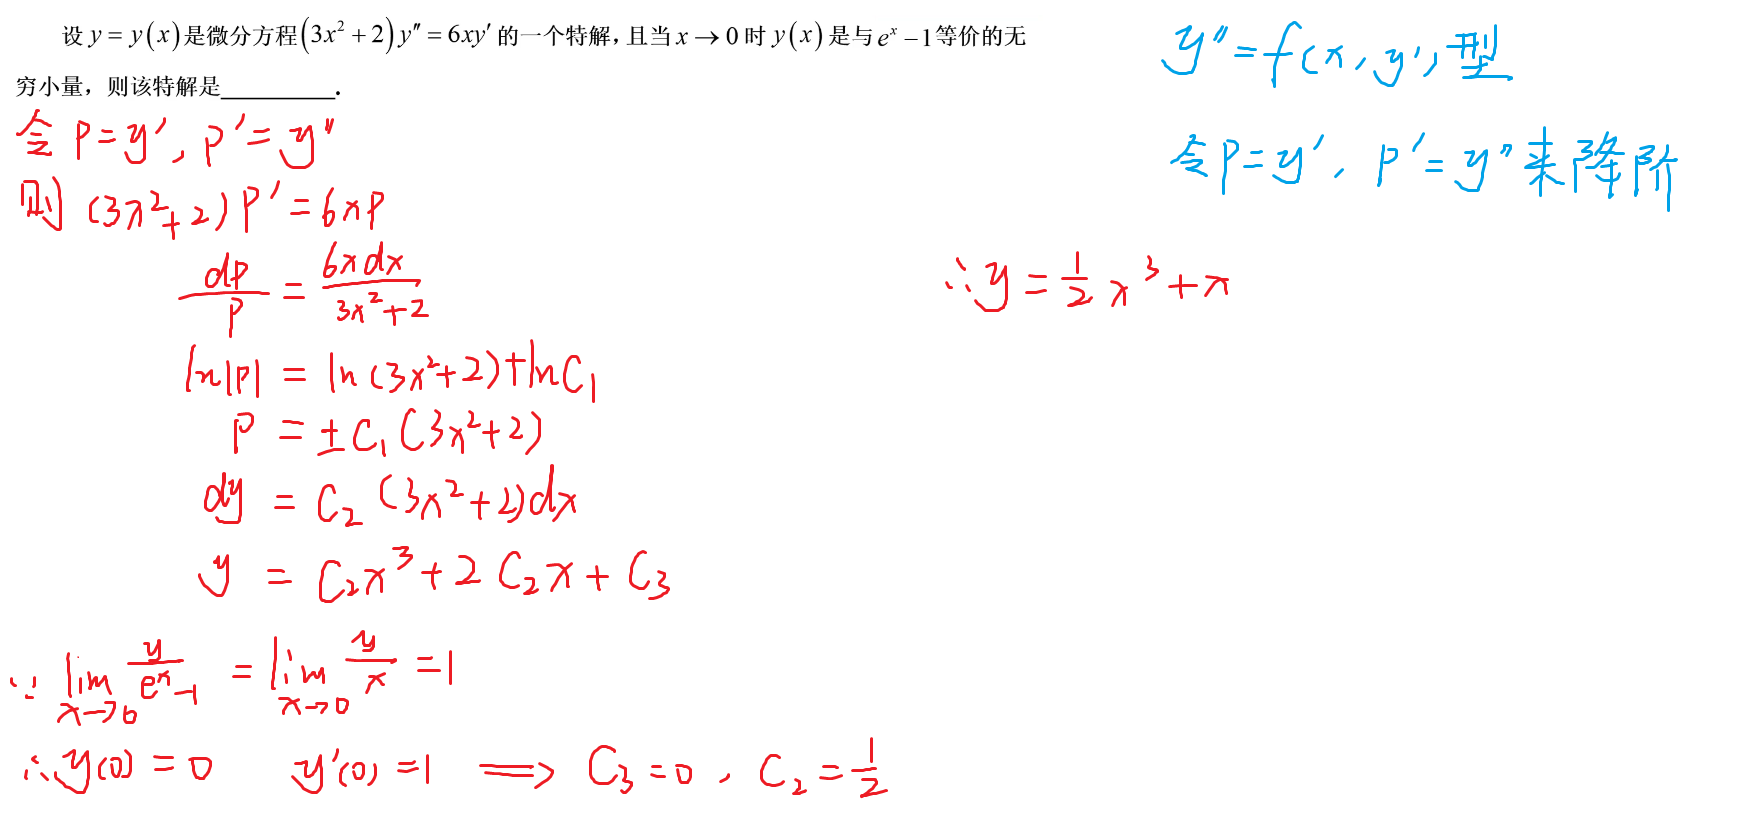 设 y = y(x) 是微分方程 (3x² + 2) y″ = 6xy′ 的一个特解, 且当 x → 0 时 y(x) 是与 eˣ − 1 等价的无
穷小量，则该特解是__________.
令 P = y′, P′ = y″
则 (3x²+2) P′ = 6xP
dP/P = 6xdx/(3x²+2)
ln|P| = ln(3x²+2) + lnC₁
P = ±C₁(3x²+2)
dy = C₂(3x²+2)dx
y = C₂x³ + 2C₂x + C₃
∵ lim_{x→0} y/(eˣ−1) = lim_{x→0} y/x = 1
∴ y(0) = 0 y′(0) = 1 ⟹ C₃ = 0, C₂ = 1/2
y″ = f(x, y′) 型
令 P = y′, P′ = y″ 来降阶
∴ y = 1/2 x³ + x